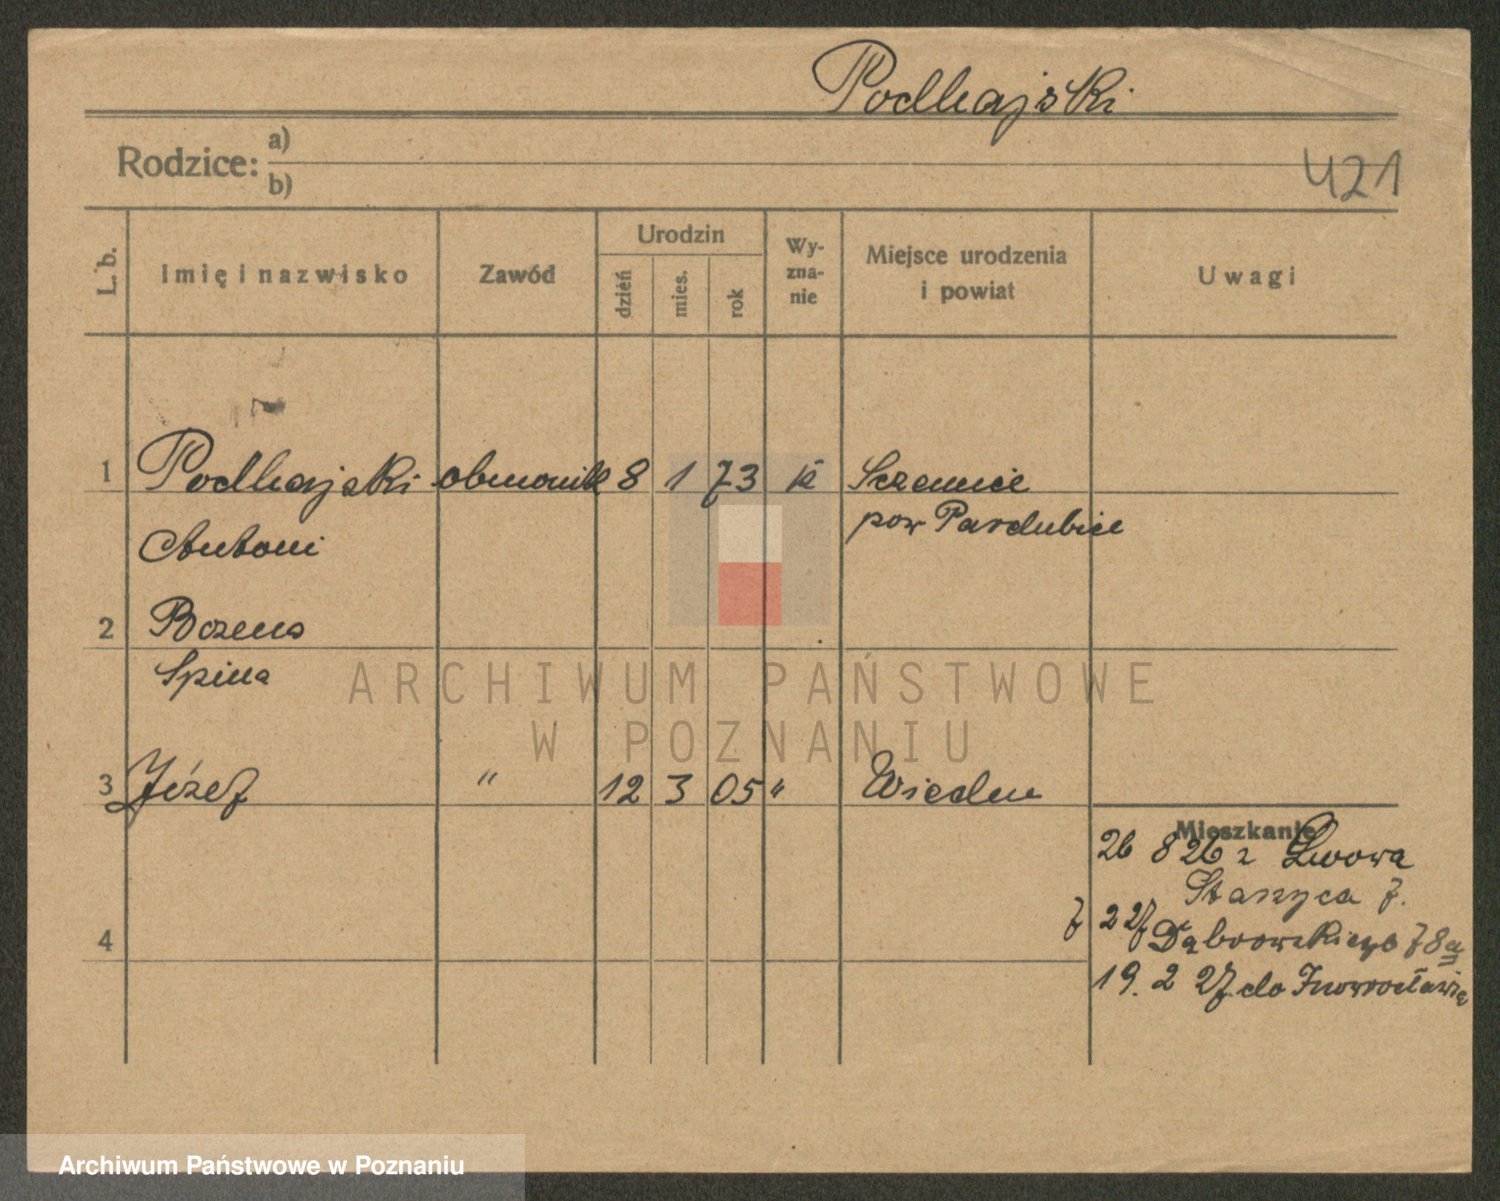 Podhajski
Rodzice: a)
b)
421
L. b.
Imię i nazwisko
Zawód
Urodzin
dzień
mies.
rok
Wy-
zna-
nie
Miejsce urodzenia
i powiat
Uwagi
1 Podhajski 8 1 73 k
pow Pardubice
Antoni
2 Bozena
Spina
3 Józef " 12 3 05 " Wieden
Mieszkanie
26 8 26 z Lwowa
Staszyca 7.
7 2 27 Dąbrowskiego 78a
19. 2 27. do Inowrocławia
4
ARCHIWUM PAŃSTWOWE
W POZNANIU
Archiwum Państwowe w Poznaniu